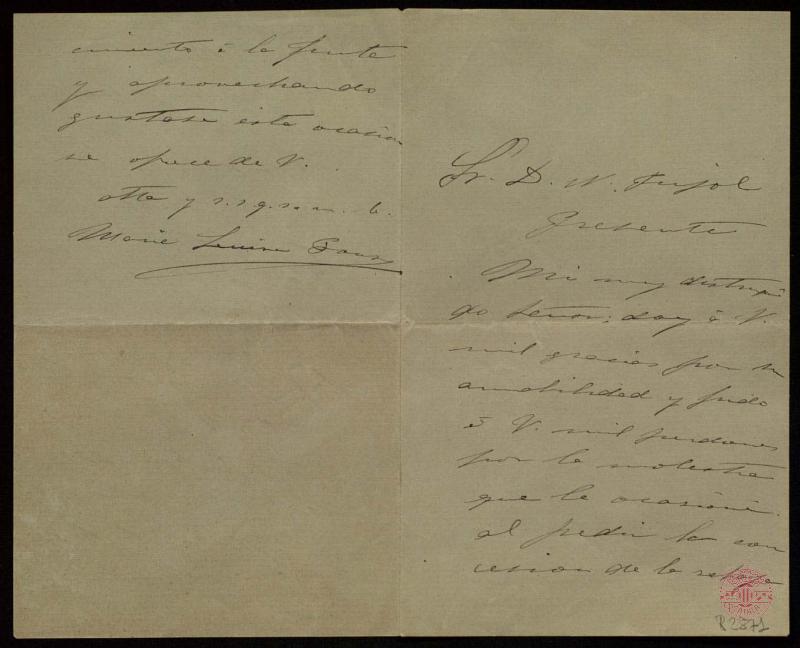 Sr. D. N. Pujol
Presente
Mi muy distingui
do Señor; doy á V.
mil gracias por su
amabilidad y pido
á V. mil perdones
por la molestia
que le ocasioné
al pedir la con
cesion de la
cimiento á la
y aprovechando
gustosa esta ocasion
se ofrece de V.
atta y s. s. q. s. m. b.
Marie Louise
R2371